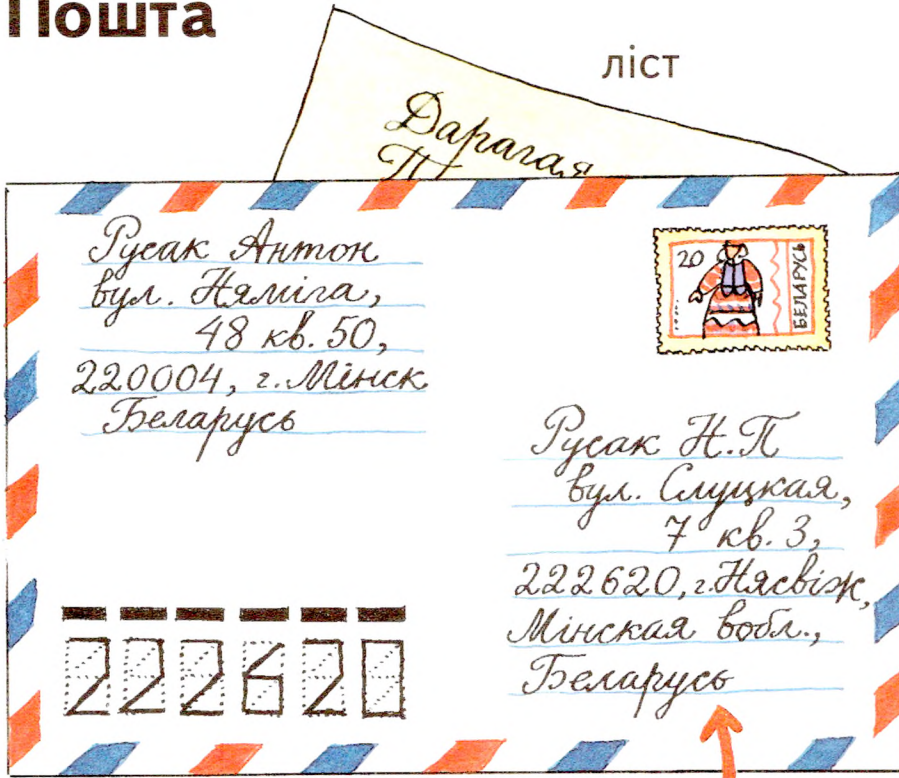 Пошта
ліст
Дарагая
Русак Антон
вул. Няміга,
48 кв. 50,
220004, г. Мінск
Беларусь
20
БЕЛАРУСЬ
Русак Н.П
вул. Слуцкая,
7 кв. 3,
222620, г. Нясвіж,
Мінская вобл.,
Беларусь
222620